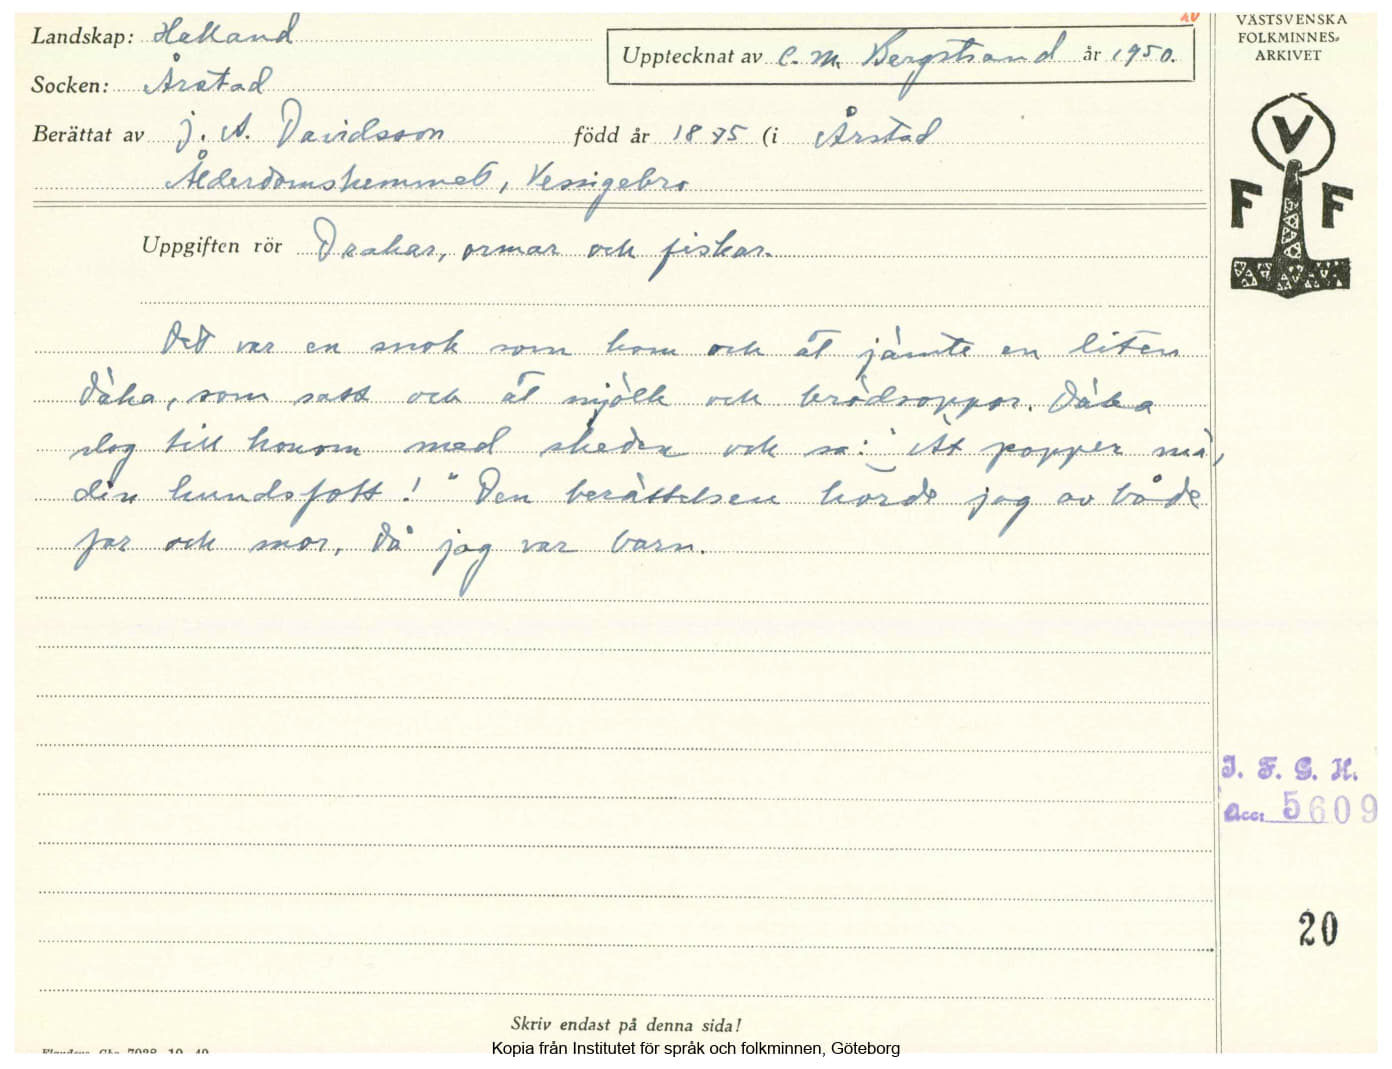 Landskap: Halland
Upptecknat av C. M. Bergstrand år 1950.
Socken: Årstad
Berättat av J. A. Davidsson född år 1875 (i Årstad
Ålderdomshemmet, Vessigebro
Uppgiften rör Drakar, ormar och fiskar.
Det var en snok som kom och åt jämte en liten
däka, som satt och åt mjölk och brödsoppor. Däka
slog till honom med skeden och sa: "Ät popper mä,
din hundsfott!" Den berättelsen hörde jag av både
far och mor, då jag var barn.
Skriv endast på denna sida!
Kopia från Institutet för språk och folkminnen, Göteborg
VÄSTSVENSKA
FOLKMINNES-
ARKIVET
V
F F
I. F. G. H.
Acc: 5609
20